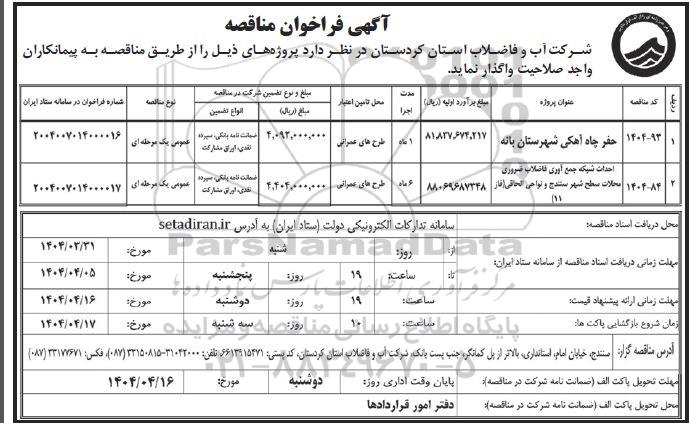 آگهی فراخوان مناقصه
شرکت آب و فاضلاب استان کردستان در نظر دارد پروژه‌های ذیل را از طریق مناقصه به پیمانکاران
واجد صلاحیت واگذار نماید.
ردیف | کد مناقصه | عنوان پروژه | مبلغ برآورد اولیه (ریال) | مدت اجرا | محل تامین اعتبار | مبلغ و نوع تضمین شرکت در مناقصه: مبلغ (ریال) | انواع تضمین | نوع مناقصه | شماره فراخوان در سامانه ستاد ایران
۱ | ۱۴۰۴-۹۳ | حفر چاه آهکی شهرستان بانه | ۸۱,۸۳۷,۶۷۴,۲۱۷ | ۱ ماه | طرح های عمرانی | ۴,۰۹۲,۰۰۰,۰۰۰ | ضمانت نامه بانکی، سپرده نقدی، اوراق مشارکت | عمومی یک مرحله ای | ۲۰۰۴۰۰۷۰۱۴۰۰۰۰۱۶
۲ | ۱۴۰۴-۸۴ | احداث شبکه جمع آوری فاضلاب ضروری محلات سطح شهر سنندج و نواحی الحاقی(فاز ۱۱) | ۸۸۰۶۹۶۸۷۳۴۸ | ۶ ماه | طرح های عمرانی | ۴,۴۰۴,۰۰۰,۰۰۰ | ضمانت نامه بانکی، سپرده نقدی، اوراق مشارکت | عمومی یک مرحله ای | ۲۰۰۴۰۰۷۰۱۴۰۰۰۰۱۷
محل دریافت اسناد مناقصه: سامانه تدارکات الکترونیکی دولت (ستاد ایران) به آدرس setadiran.ir
مهلت زمانی دریافت اسناد مناقصه از سامانه ستاد ایران: از: روز: شنبه مورخ: ۱۴۰۴/۰۳/۳۱
تا: ساعت: ۱۹ روز: پنجشنبه مورخ: ۱۴۰۴/۰۴/۰۵
مهلت زمانی ارائه پیشنهاد قیمت: ساعت: ۱۹ روز: دوشنبه مورخ: ۱۴۰۴/۰۴/۱۶
زمان شروع بازگشایی پاکت ها: ساعت: ۱۰ روز: سه شنبه مورخ: ۱۴۰۴/۰۴/۱۷
آدرس مناقصه گزار: سنندج، خیابان امام، استانداری، بالاتر از پل کمانگر، جنب پست بانک، شرکت آب و فاضلاب استان کردستان، کد پستی: ۶۶۱۳۹۱۵۴۷۱، تلفن: ۳۱۰۴۲۰۰۰-۳۳۱۵۰۸۱۵ (۰۸۷)، فکس: ۳۳۱۷۷۶۷۱ (۰۸۷)
مهلت تحویل پاکت الف (ضمانت نامه شرکت در مناقصه): پایان وقت اداری روز: دوشنبه مورخ: ۱۴۰۴/۰۴/۱۶
محل تحویل پاکت الف (ضمانت نامه شرکت در مناقصه): دفتر امور قراردادها
ParsNamadData
مرکز فرآوری اطلاعات پارس نماد داده ها
پایگاه اطلاع رسانی مناقصه و مزایده
۰۲۱-۸۸۳۴۹۶۷۰-۵